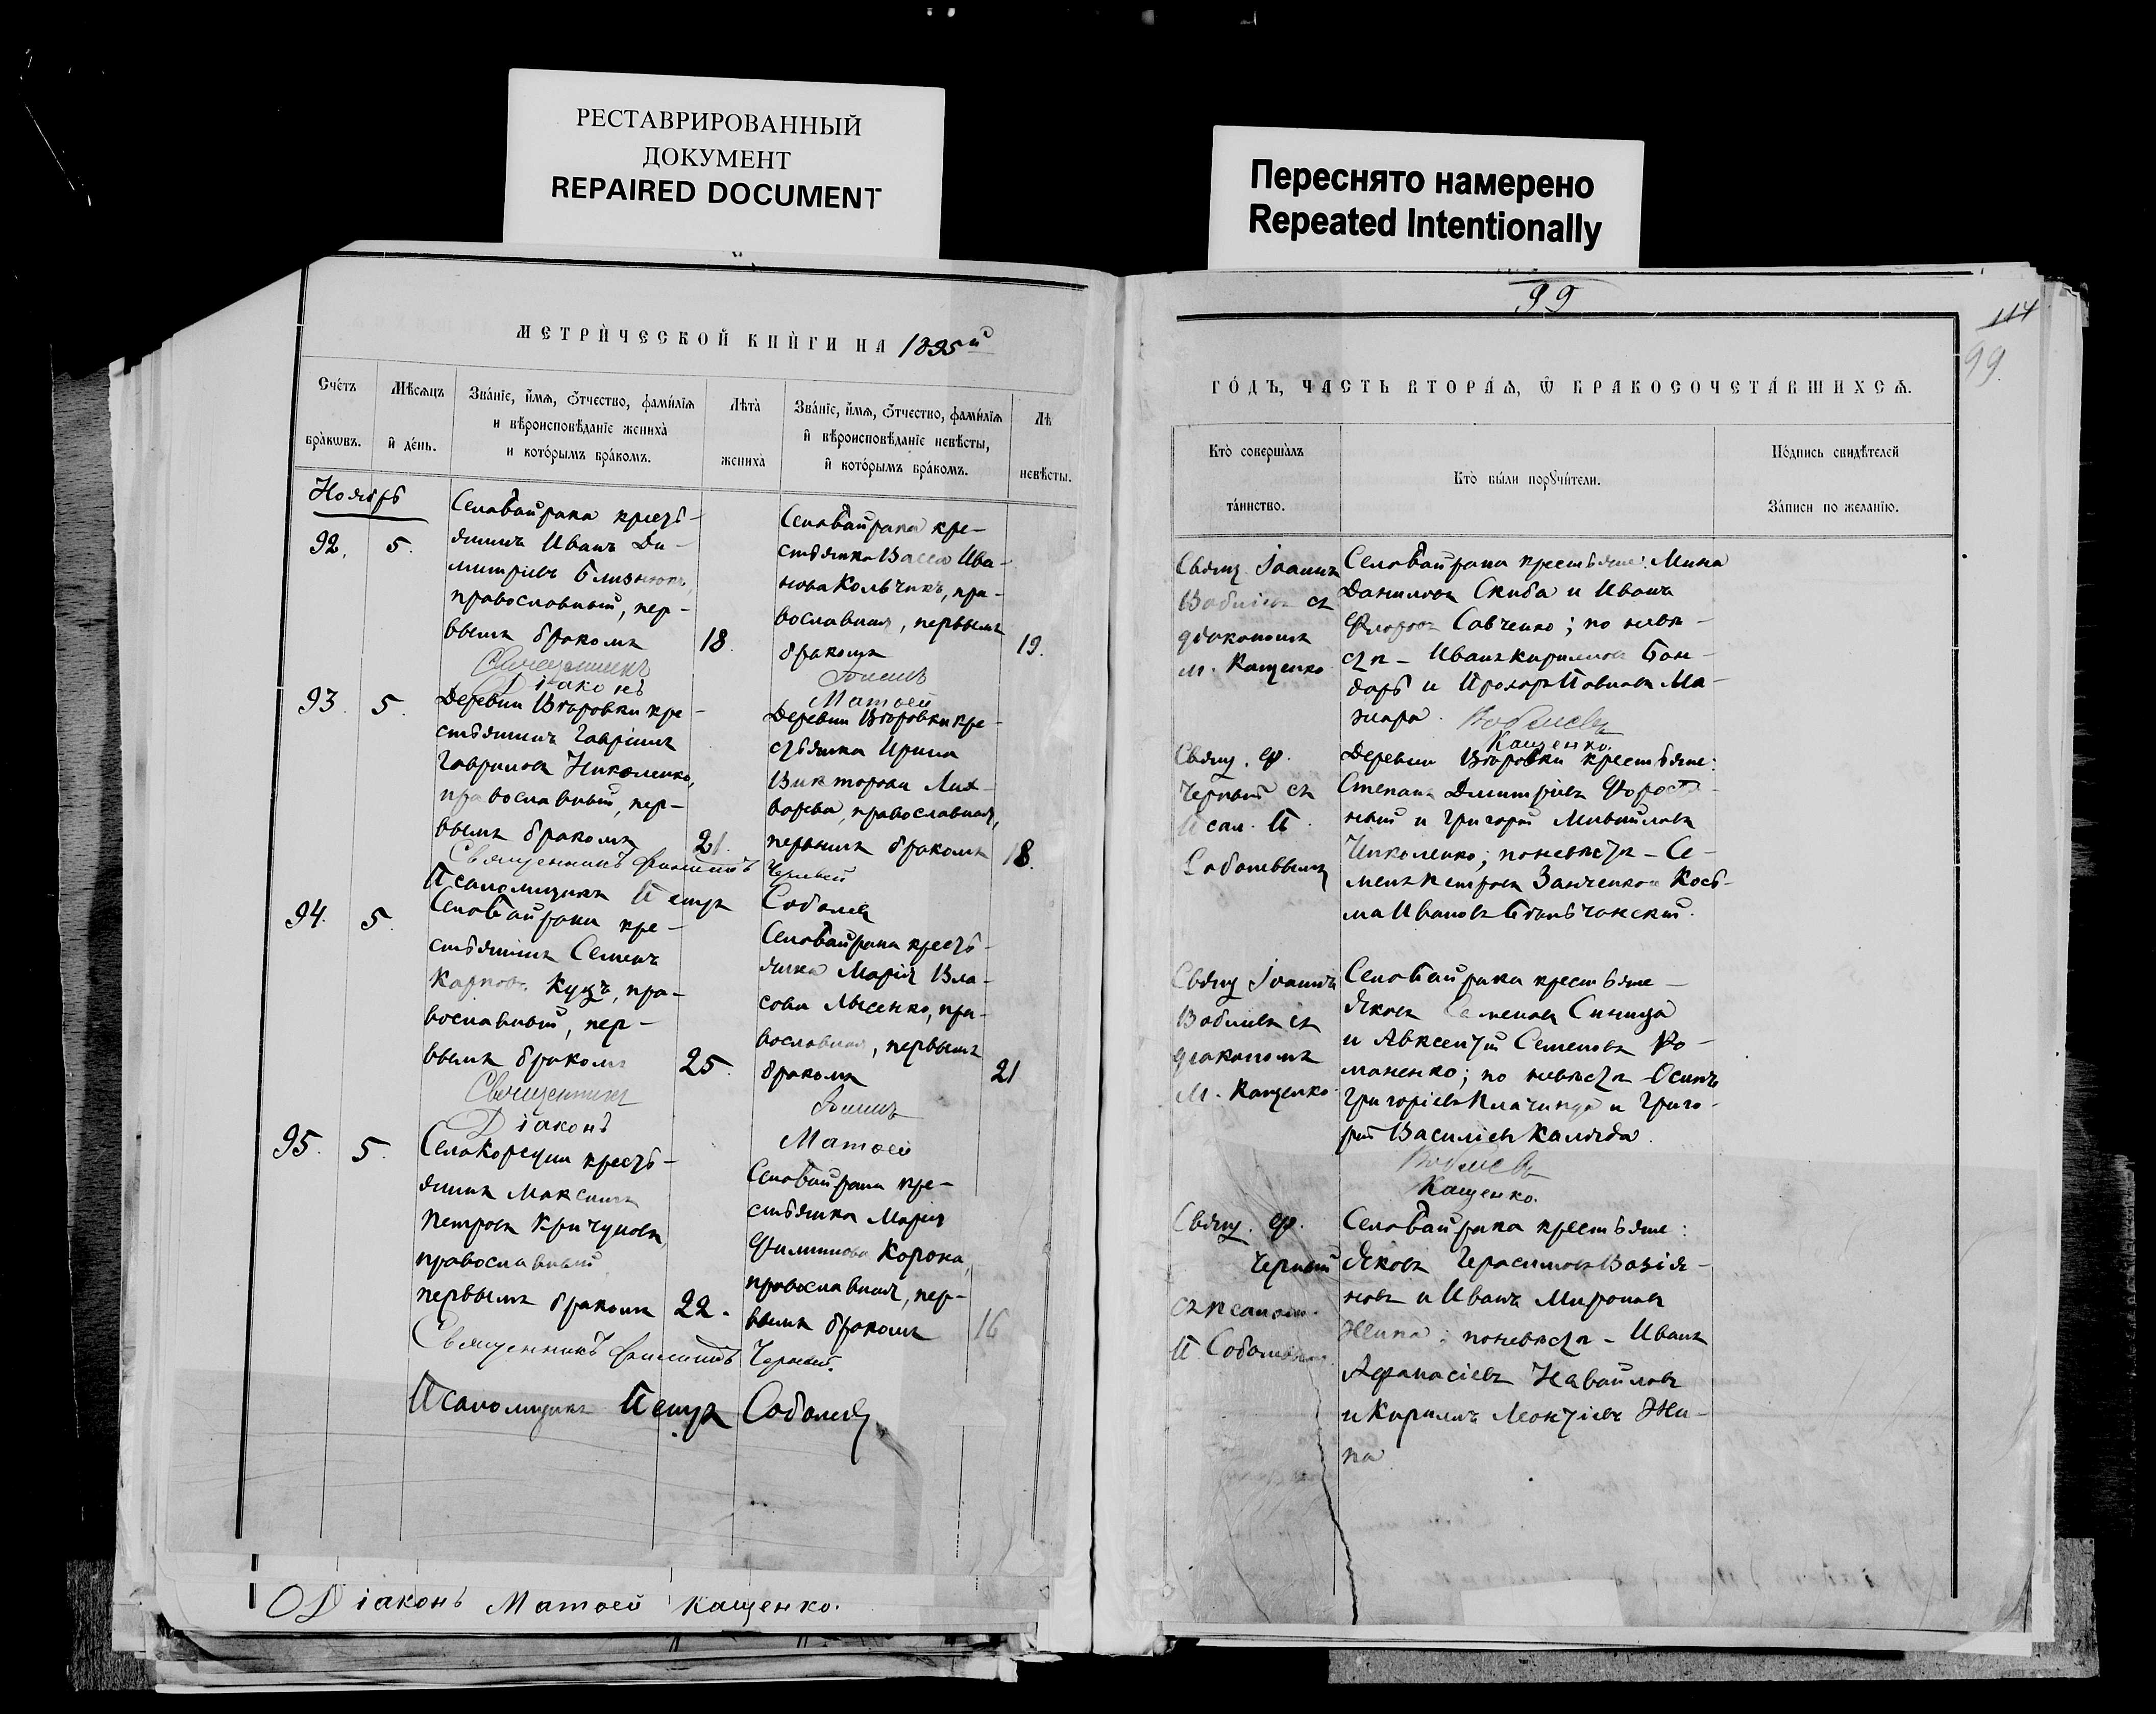 РЕСТАВРИРОВАННЫЙ
ДОКУМЕНТ
REPAIRED DOCUMENT
Переснято намерено
Repeated Intentionally
МЕТРИ́ЧЕСКОЙ КНИ́ГИ НА 1895й
Сче́тъ
бра́кѡвъ.
Мѣсѧцъ
и҆ де́нь.
Зва́нїе, и҆́мѧ, ѻ҆́тчество, фами́лїѧ
и вѣроисповѣ́данїе жениха̀
и кото́рымъ бра́комъ.
Лѣта̀
жениха̀
Зва́нїе, и҆́мѧ, ѻ҆́тчество, фами́лїѧ
и҆ вѣроисповѣ́данїе невѣ́сты,
и҆ кото́рымъ бра́комъ.
Лѣ
невѣ́сты.
Ноябрь
92.
5.
Села Байрака кресть-
янинъ Иванъ Ди-
митріевъ Близнюкъ,
православный, пер-
вымъ бракомъ
18.
Села Байрака кре-
стьянка Васса Ива-
нова Кольчикъ, пра-
вославная, первымъ
бракомъ
19.
Священникъ
Іоаннъ
Діаконъ
Матѳей
93.
5.
Деревни Второвки кре-
стьянинъ Гавріилъ
Гавриловъ Николенко,
православный, пер-
вымъ бракомъ
21.
Деревни Второвки кре-
стьянка Ирина
Викторова Лих-
варева, православная,
первымъ бракомъ
18.
Священникъ Филиппъ
Черный
Псаломщикъ Петръ
Соболев
94.
5.
Села Байрака кре-
стьянинъ Семенъ
Карповъ Куцъ, пра-
вославный, пер-
вымъ бракомъ
25.
Села Байрака кресть-
янка Марія Вла-
сова Лысенко, пра-
вославная, первымъ
бракомъ
21
Священникъ
Іоаннъ
Діаконъ
Матѳей
95.
5.
Села Корещин кресть-
янинъ Максимъ
Петровъ Кричуновъ,
православный
первымъ бракомъ
22.
Села Байрака кре-
стьянка Марія
Филиппова Корока,
православная, пер-
вымъ бракомъ
16
Священникъ Филиппъ
Черный.
Псаломщикъ Петръ Соболев
Діаконъ Матѳей Кащенко.
99
114
99.
ГО́ДЪ, ЧАСТЬ ВТОРА́Ѧ, Ѽ БРАКОСОЧЕТА́ВШИХСѦ.
Кто̀ соверша́лъ
та́инство.
Кто̀ бы́ли порꙋчи́тели.
По́дпись свидѣ́телей
За́писи по жела́нїю.
Свящ. Іоаннъ
Воблиевъ съ
діакономъ
М. Кащенко
Села Байрака крестьяне: Мина
Даниловъ Скиба и Иванъ
Флоровъ Савченко; по невѣ-
стѣ - Иванъ Кириловъ Бон-
дарь и Прохоръ Павловъ Ма-
знара.
Воблиевъ
Кащенко.
Свящ. Ф.
Черный съ
Псал. П.
Соболевымъ
Деревни Второвки крестьяне:
Степанъ Димитріевъ Форост-
ный и Григорій Михайловъ
Николенко; по невѣстѣ - Се-
менъ Петровъ Занченко и Кось-
ма Ивановъ
Свящ Іоаннъ
Воблиевъ съ
діакономъ
М. Кащенко
Села Байрака крестьяне -
Яковъ Семеновъ Синица
и Авксентій Семеновъ Ро-
маненко; по невѣстѣ - Осипъ
Григоріевъ Плачинда и Григо-
рій Василіевъ Каляда.
Воблиевъ
Кащенко.
Свящ. Ф.
Черный
съ псалом.
П. Соболевым
Села Байрака крестьяне:
Яковъ Герасимовъ Вазія-
новъ и Иванъ Мироновъ
Жила; по невѣстѣ - Иванъ
Афанасіевъ
и Кирилъ Леонтіевъ Жи-
ла